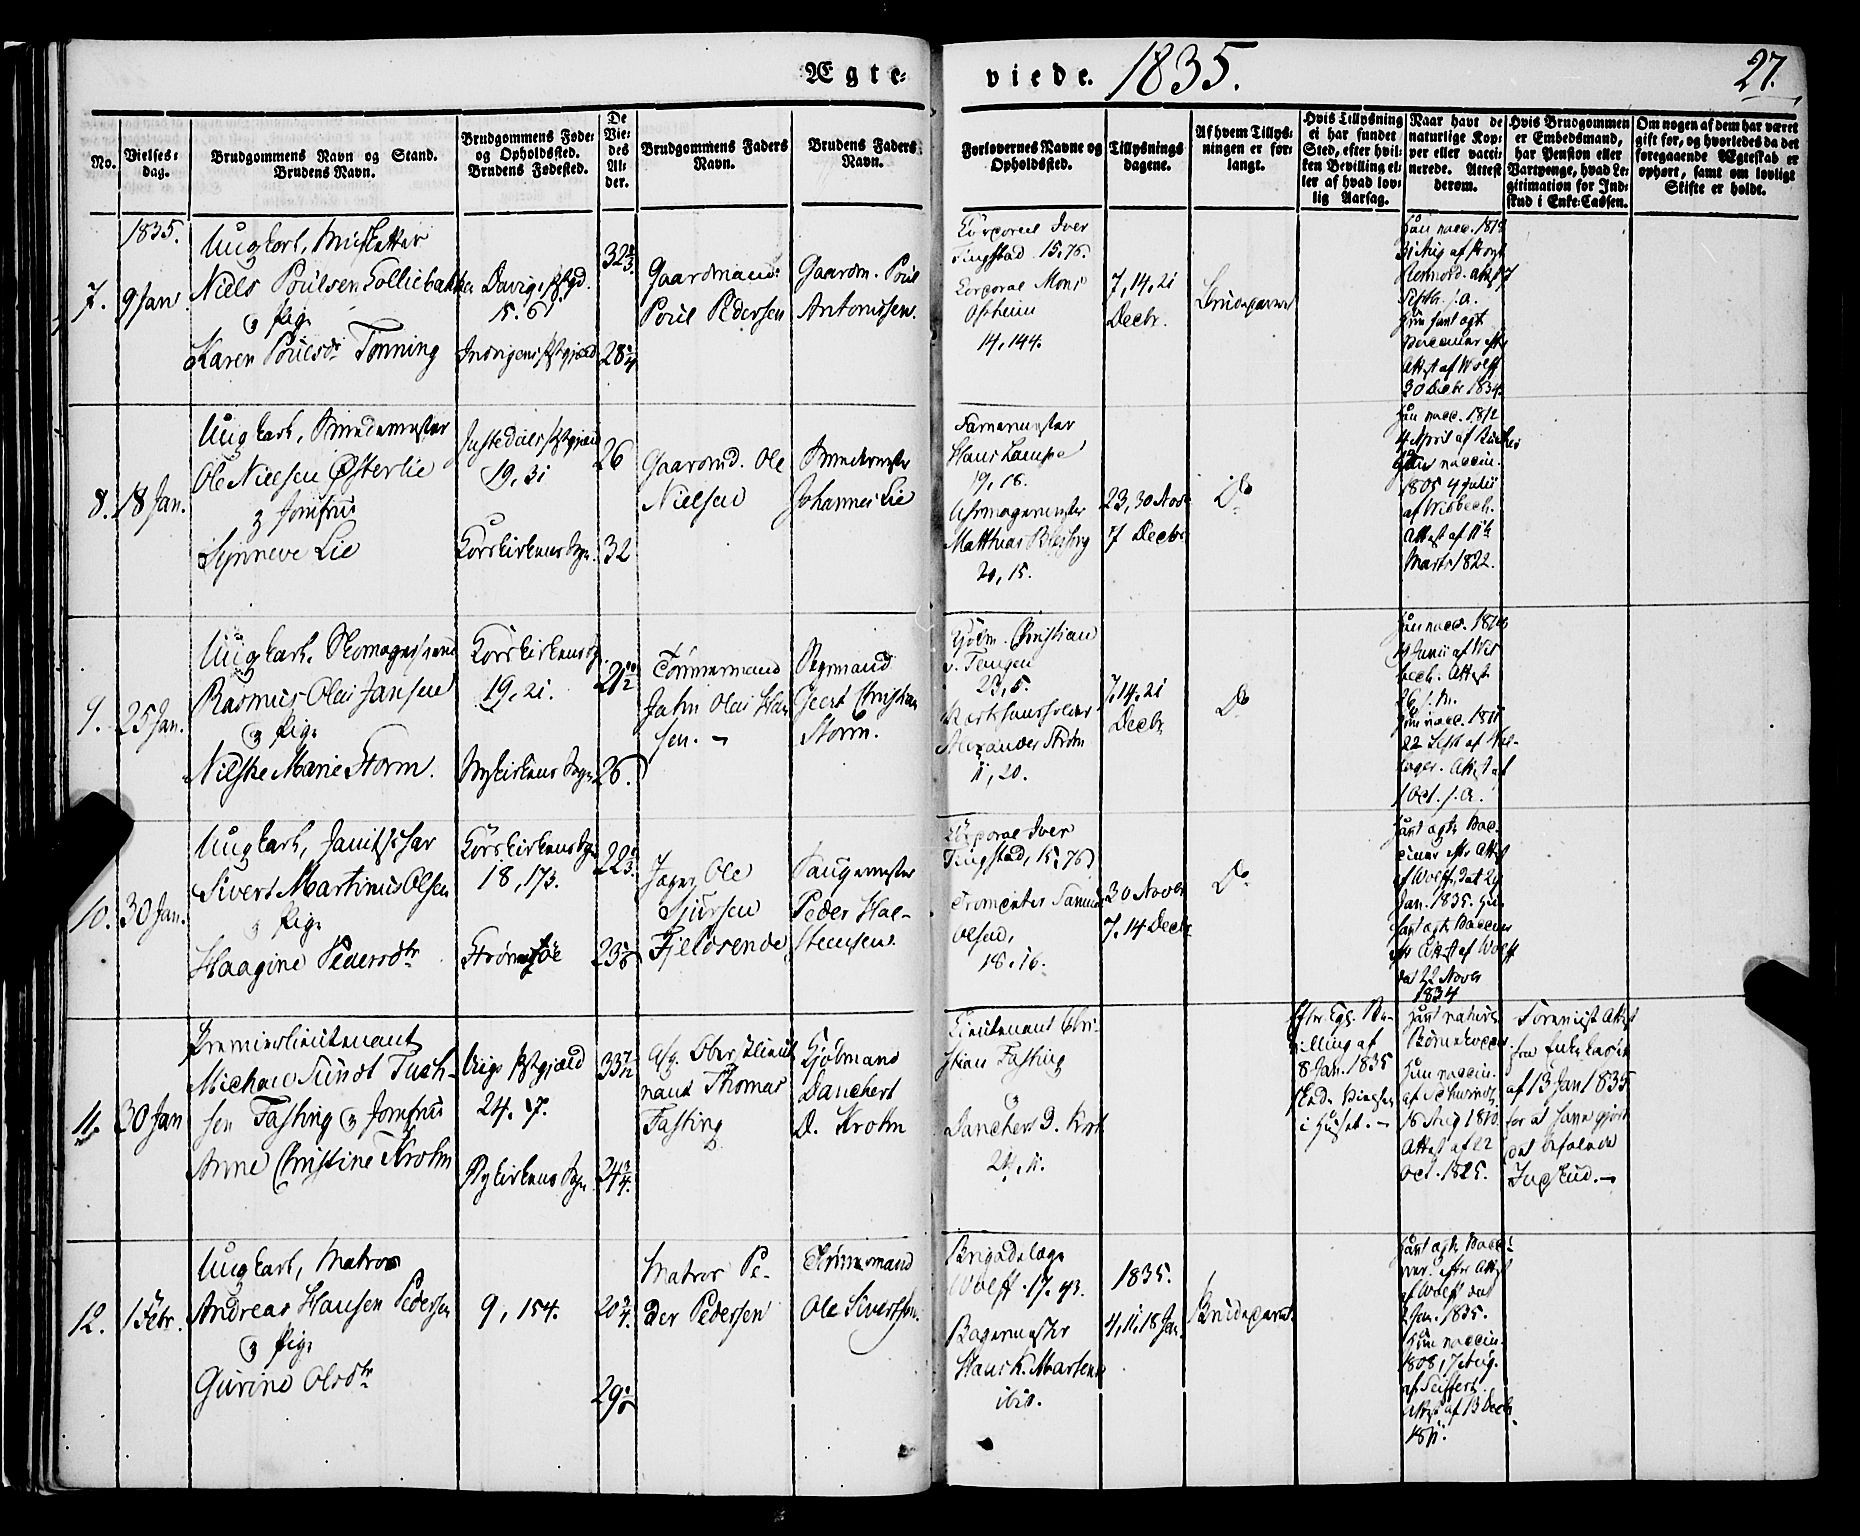 Ægte-
viede. 1835.
27.
No.
Vielses-
dag.
Brudgommens Navn og Stand.
Brudens Navn.
Brudgommens Føde-
og Opholdssted.
Brudens Fødested.
De
Vie-
des
Al-
der.
Brudgommens Faders
Navn.
Brudens Faders
Navn.
Forlovernes Navne og
Opholdssted.
Tillysnings
dagene.
Af hvem Tillys-
ningen er for-
langt.
Hvis Tillysning
ei har fundet
Sted, efter hvil-
ken Bevilling el-
ler af hvad lov-
lig Aarsag.
Naar havt de
naturlige Kop-
per eller vacci-
nerede. Attest
derom.
Hvis Brudgommen
er Embedsmand,
har Pension eller
Vartpenge, hvad Le-
gitimation for Ind-
skud i Enke-Cassen.
Om nogen af dem har været
gift før, og hvorledes da det
foregaaende Ægteskab er
ophørt, samt om lovligt
Skifte er holdt.
1835.
7.
9 Jan.
Ungkarl, Musketter
Niels Poulsen
& Pige
Karen Poulsdr Tønning
Davigs Pstgd.
15. 6
Indvigens Pstgjeld
32
28
Gaardmand
Poul Pedersen
Gaardm. Poul
Antonissen
Corporal Iver
Tingstad 15.76.
Corporal Mons
Opheim
14, 144.
7, 14, 21
Decbr.
Brudeparret
Septbr. s. a.
Attest af Wolff
30 Decbr 1834.
8.
18 Jan.
Ungkarl, Bundtmester
Ole Nielsen Østerlie
& Jomfru
Synneve Lie
Justedals Pstgjeld
19, 31
Korskirkens Sogn.
26
32
Gaardmd. Ole
Nielsen
Johannes Lie
Farvemester
Hans Lampe
19, 18.
Matthias
20, 15.
23, 30 Novr
7 Decbr
Do
han vacc. 1812
4 April af
hun vaccin.
1805 4 Julii
af Wisbech.
Attest af 11te
Marts 1822.
9.
25 Jan.
Ungkarl, Skomagersvend
Rasmus Olai Jansen
& Pige
Nilske Marie Storm.
Korskirkens Sogn
19, 21.
Nykirkens Sogn
21
26.
Tømmermand
Jahn Olai Han
sen. -
Geert Christian
Storm.
Kjøbm. Christian
v. Tangen
23, 5.
Alexander Strøm
11, 20.
7, 14, 21
Decbr
Do
han vacc. 1814
19 Junii af Wis
bech. Attest
26 s. M.
hun vacc. 1811
22 Septb af
Attest af
1 Oct. s. a.
10.
30 Jan.
Ungkarl, Janitschar
Sivert Martinus Olsen
& Pige
Haagine Pedersdtr
Korskirkens Sogn
18, 173.
Strømsøe
22
23
Jager Ole
Sjursen
Fjeldsende
Laugsmester
Peder Hal-
steensen
Corporal Iver
Tingstad, 15, 76
Olsen,
18, 16.
30 Novbr
7, 14 Decbr
Do
havt ægte Vac-
ciner eftr Attest
af Wolff, dat 29
Jan. 1835. Hun
havt ægte Vacciner
eftr Attest af Wolff
dat 22 Novbr
1834
11.
30 Jan
Premierlieutenant
Michael Sundt Tuch-
sen Fasting & Jomfru
Anne Christine Krohn
Viigs Pstgjeld
24. 7.
Nykirkens Sogn
33
24
Afg. Oberstlieut
nant Thomas
Fasting
Kjøbmand
Danckert
D. Krohn
Lieutenant Chri-
stian Fasting
&
Danckert D. Krohn
24, 11.
Eftr. Kgl. Be-
villing af
8 Jan. 1835
i Huset. -
havt naturl.
Børnekopper
hun vaccin.
16 Aug 1810.
Attest af 22
Oct. 1825.
Foreviist Attest
fra Enkekassen
af 13 Jan 1835
for at have gjort
det befalede
Indskud. -
12.
1 Febr.
Ungkarl, Matros
Andreas Hansen Pedersen
& Pige
Gurine Olsdtr
9, 154.
20
29
Matros Pe-
der Pedersen
Tømmermand
Ole Sivertsen.
Brigadelæge
Wolff. 17, 93.
Bagermester
Hans K. Martens
ibid.
1835.
4, 11, 18 Jan.
Brudeparret
havt ægte Vacci-
ner eftr Attest
af Wolff dat
2 Jan. 1835.
Hun vaccin.
1808, 17 Aug.
af Seiffert
Attest af 13 Decbr
1811.